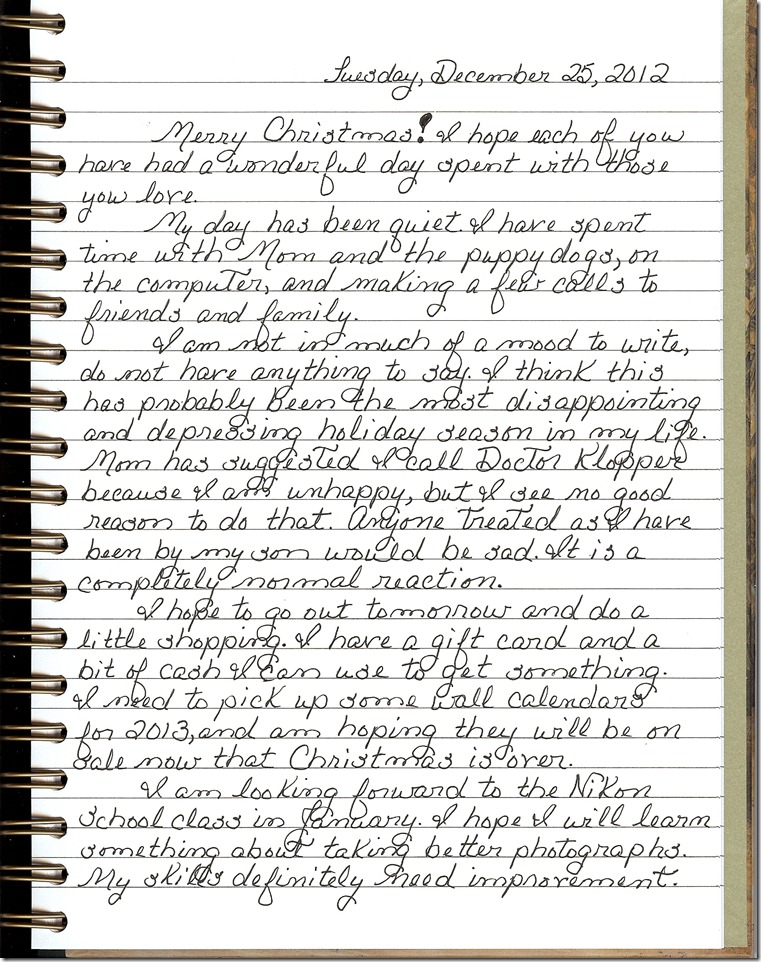 Tuesday, December 25, 2012
Merry Christmas! I hope each of you
have had a wonderful day spent with those
you love.
My day has been quiet. I have spent
time with Mom and the puppy dogs, on
the computer, and making a few calls to
friends and family.
I am not in much of a mood to write,
do not have anything to say. I think this
has probably been the most disappointing
and depressing holiday season in my life.
Mom has suggested I call Doctor Klopper
because I am unhappy, but I see no good
reason to do that. Anyone treated as I have
been by my son would be sad. It is a
completely normal reaction.
I hope to go out tomorrow and do a
little shopping. I have a gift card and a
bit of cash I can use to get something.
I need to pick up some wall calendars
for 2013, and am hoping they will be on
sale now that Christmas is over.
I am looking forward to the Nikon
School class in January. I hope I will learn
something about taking better photographs.
My skills definitely need improvement.